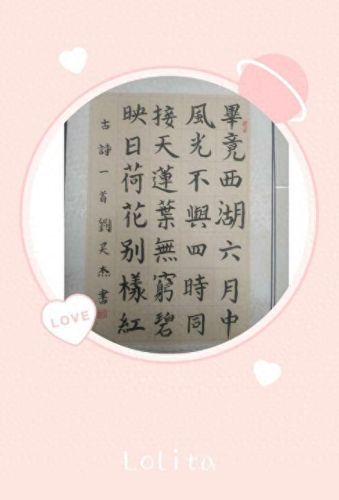 畢竟西湖六月中
風光不與四時同
接天蓮葉無窮碧
映日荷花別樣紅
古詩一首 劉昊杰書
LOVE
Lolita